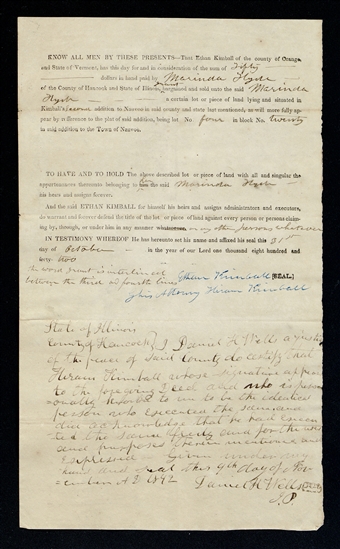 KNOW ALL MEN BY THESE PRESENTS—That Ethan Kimball of the county of Orange,
and State of Vermont, has this day for and in consideration of the sum of Fifty
dollars in hand paid by Marinda Hyde
of the County of Hancock and State of Illinois, bargained and sold unto the said Marinda
Hyde a certain lot or piece of land lying and situated in
Kimball's addition to Nauvoo in said county and state last mentioned, as will more fully
appear by reference to the plat of said addition, being lot No. four in block No. twenty
in said addition to the Town of Nauvoo.
TO HAVE AND TO HOLD The above described lot or piece of land with all and singular the
appurtenances thereunto belonging to the said Marinda Hyde
his heirs and assigns forever.
And the said ETHAN KIMBALL for himself and heirs and assigns administrators and executors,
do warrant and forever defend the title of the lot or piece of land against every person or persons claim-
ing by, through, or under him in any manner whatsoever, or any other persons whatever
IN TESTIMONY WHEREOF He has hereunto set his name and affixed his seal this 31st
day of October in the year of our Lord one thousand eight hundred and
forty two
the word grant is interlined
between the third and fourth lines
Ethan Kimball [SEAL]
by his Attorney Hiram Kimball
State of Illinois
County of Hancock } I Daniel H Wells a justice
of the peace of said County do certify that
Hiram Kimball whose signature appears
to the foregoing Deed and who is person-
onally known to me to be the identical
person who executed the same and
did acknowledge that he had execu-
ted the same freely and for the uses
and purposes therein mentioned and
expressed Given under my
hand and seal this 9th day of Nov-
ember A D 1842
Daniel H Wells
J.P.